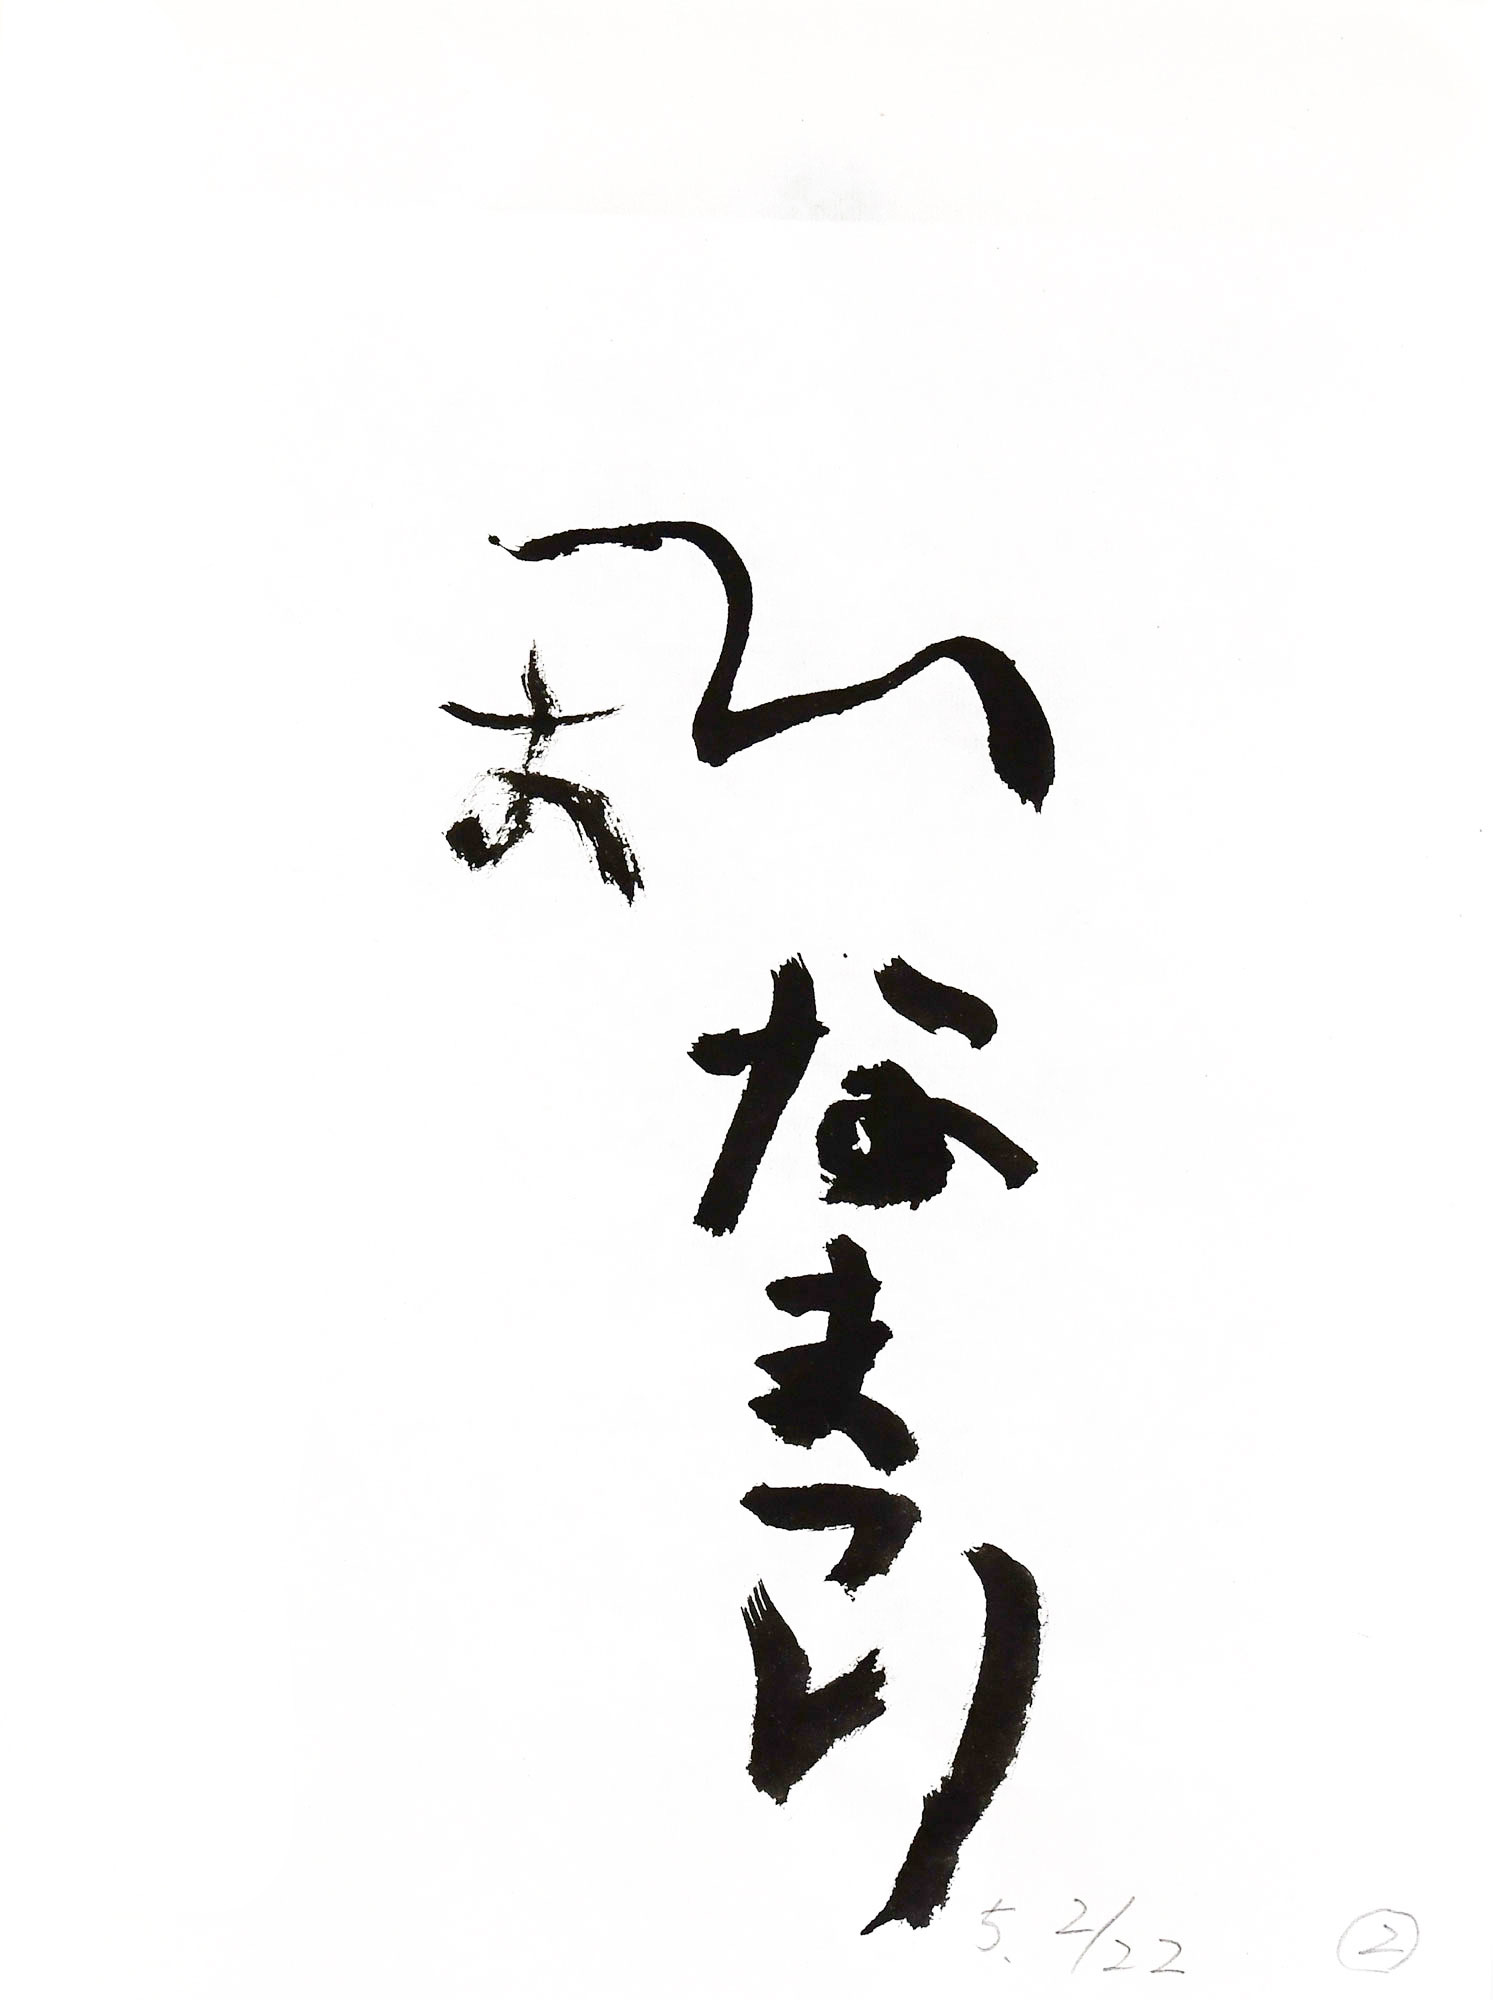 ひなまつり
5. 2/22 ②